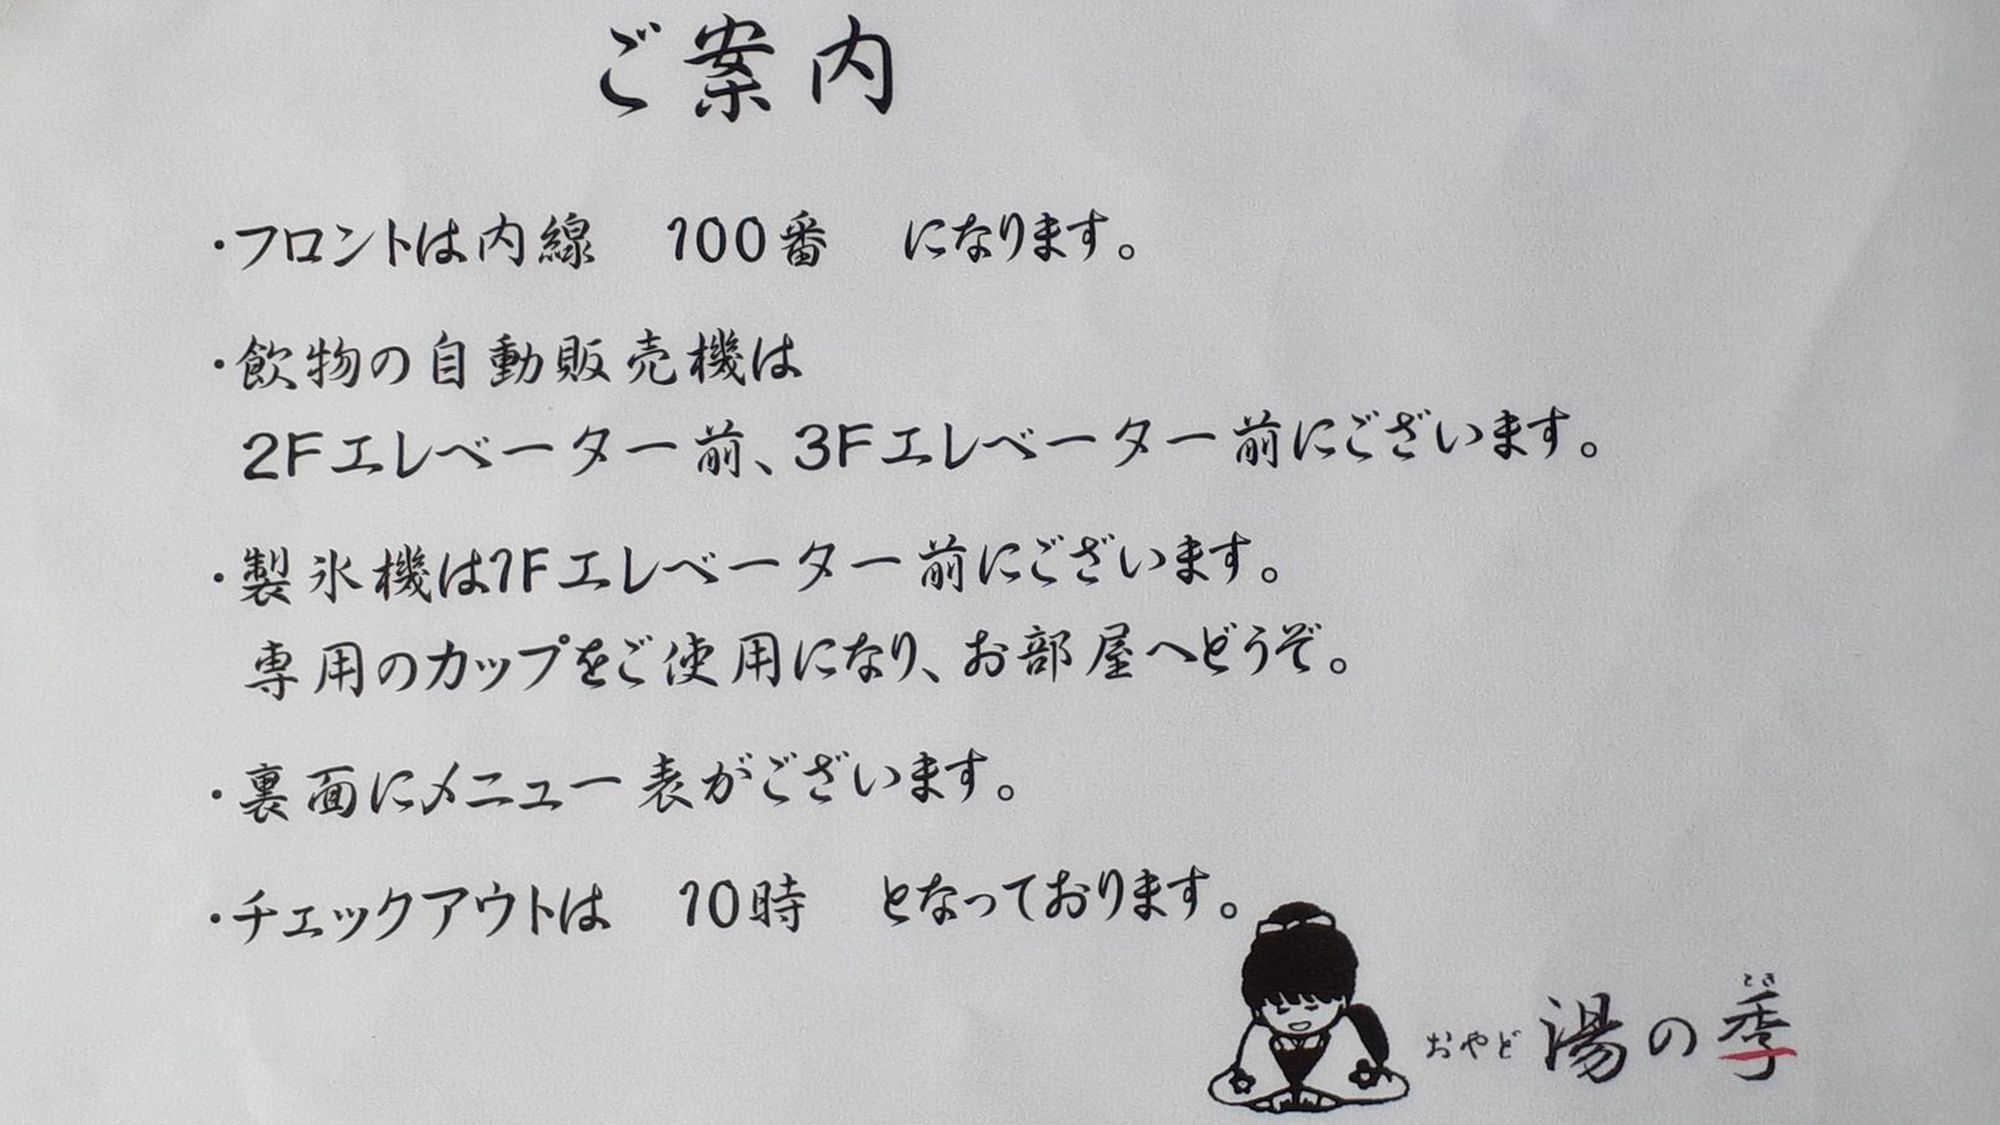 ご案内
・フロントは内線　100番　になります。
・飲物の自動販売機は
2Fエレベーター前、3Fエレベーター前にございます。
・製氷機は1Fエレベーター前にございます。
専用のカップをご使用になり、お部屋へどうぞ。
・裏面にメニュー表がございます。
・チェックアウトは　10時　となっております。
とき
おやど 湯の季